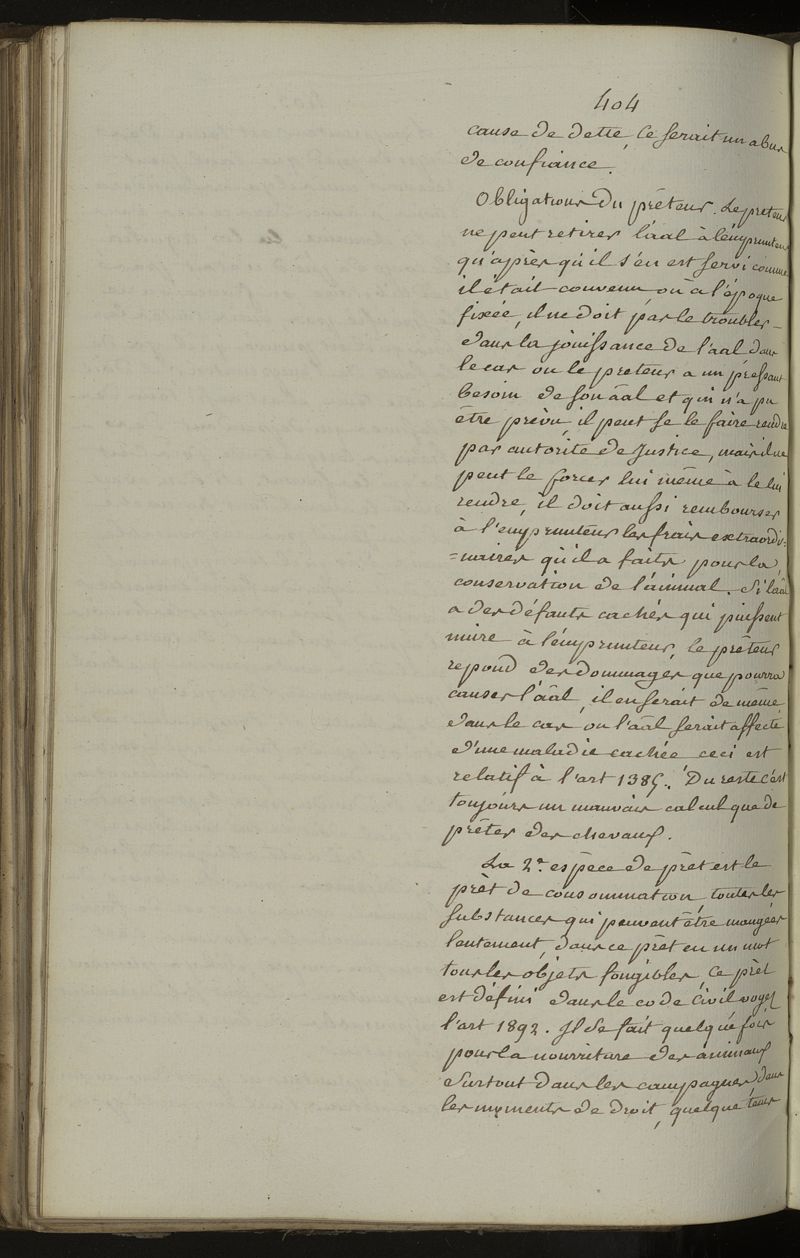 404
cause de dette, ce serait un abus
de confiance.
Obligations du prêteur. Le preteur
ne peut retirer l'aal à l'emprunteur
qu'après qu'il s'en est servi comme
il était convenu, ou à l'époque
fixée, il ne doit pas le troubler
dans la jouissance de l'aal dans
le cas ou le preteur a un pressant
besoin de son aal et qui n'a pu
être prévu, il peut se le faire rendre
par autorité de Justice, mais il ne
peut le forcer lui même à le lui
rendre, il doit aussi rembourser
à l'emprunteur les frais extraordi-
=naires qu'il a faits pour la
conservation de l'animal. Si l'aal
a des défauts cachés qui puissent
nuire à l'emprunteur, le prêteur
repond des dommages que pourra
causer l'aal, il en serait de même
dans le cas ou l'aal serait affecté
d'une maladie cachée ceci est
relatif à l'art 1385. Du reste c'est
toujours un mauvais calcul que de
prêter des chevaux.
La 2e espèce de prêt est le
prêt de consommation, toutes les
substances qui peuvent être mangées
lentement, dans ce prêt en un mot
tous les objets fongibles, ce prêt
est défini dans le code Civil voyez
l'art 1892. Il se fait quelque fois
pour la nourriture des animaux
surtout dans les campagnes, dans
les moments de droit, quelque tems